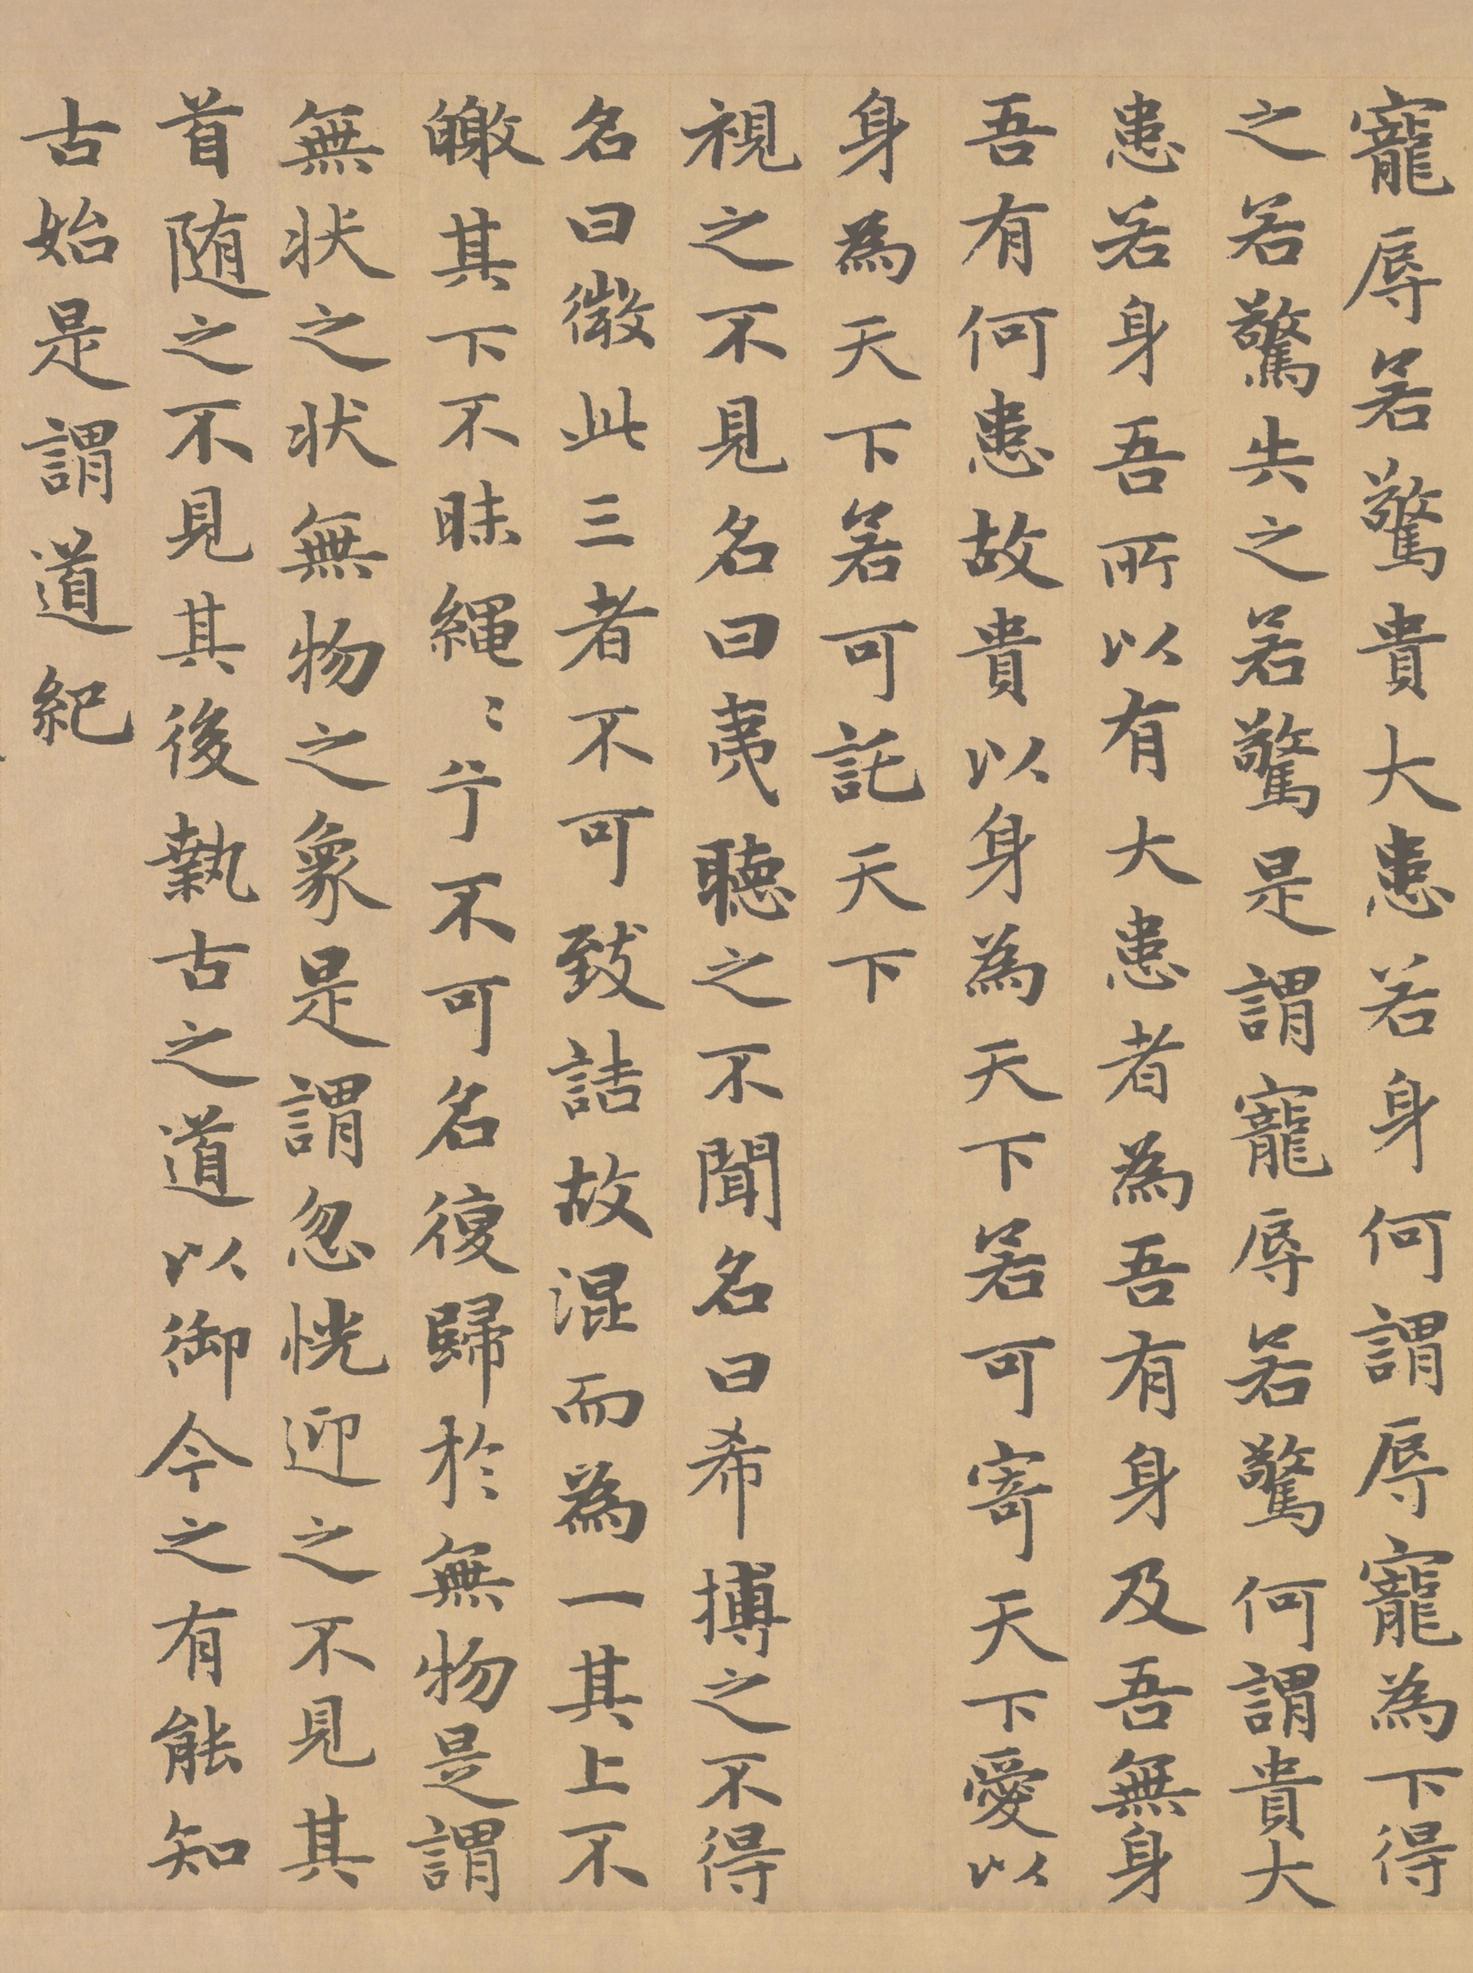 寵辱若驚貴大患若身何謂辱寵為下得
之若驚失之若驚是謂寵辱若驚何謂貴大
患若身吾所以有大患者為吾有身及吾無身
吾有何患故貴以身為天下若可寄天下愛以
身為天下若可託天下
視之不見名曰夷聽之不聞名曰希搏之不得
名曰微此三者不可致詰故混而為一其上不
皦其下不昧繩〻兮不可名復歸於無物是謂
無狀之狀無物之象是謂忽恍迎之不見其
首隨之不見其後執古之道以御今之有能知
古始是謂道紀